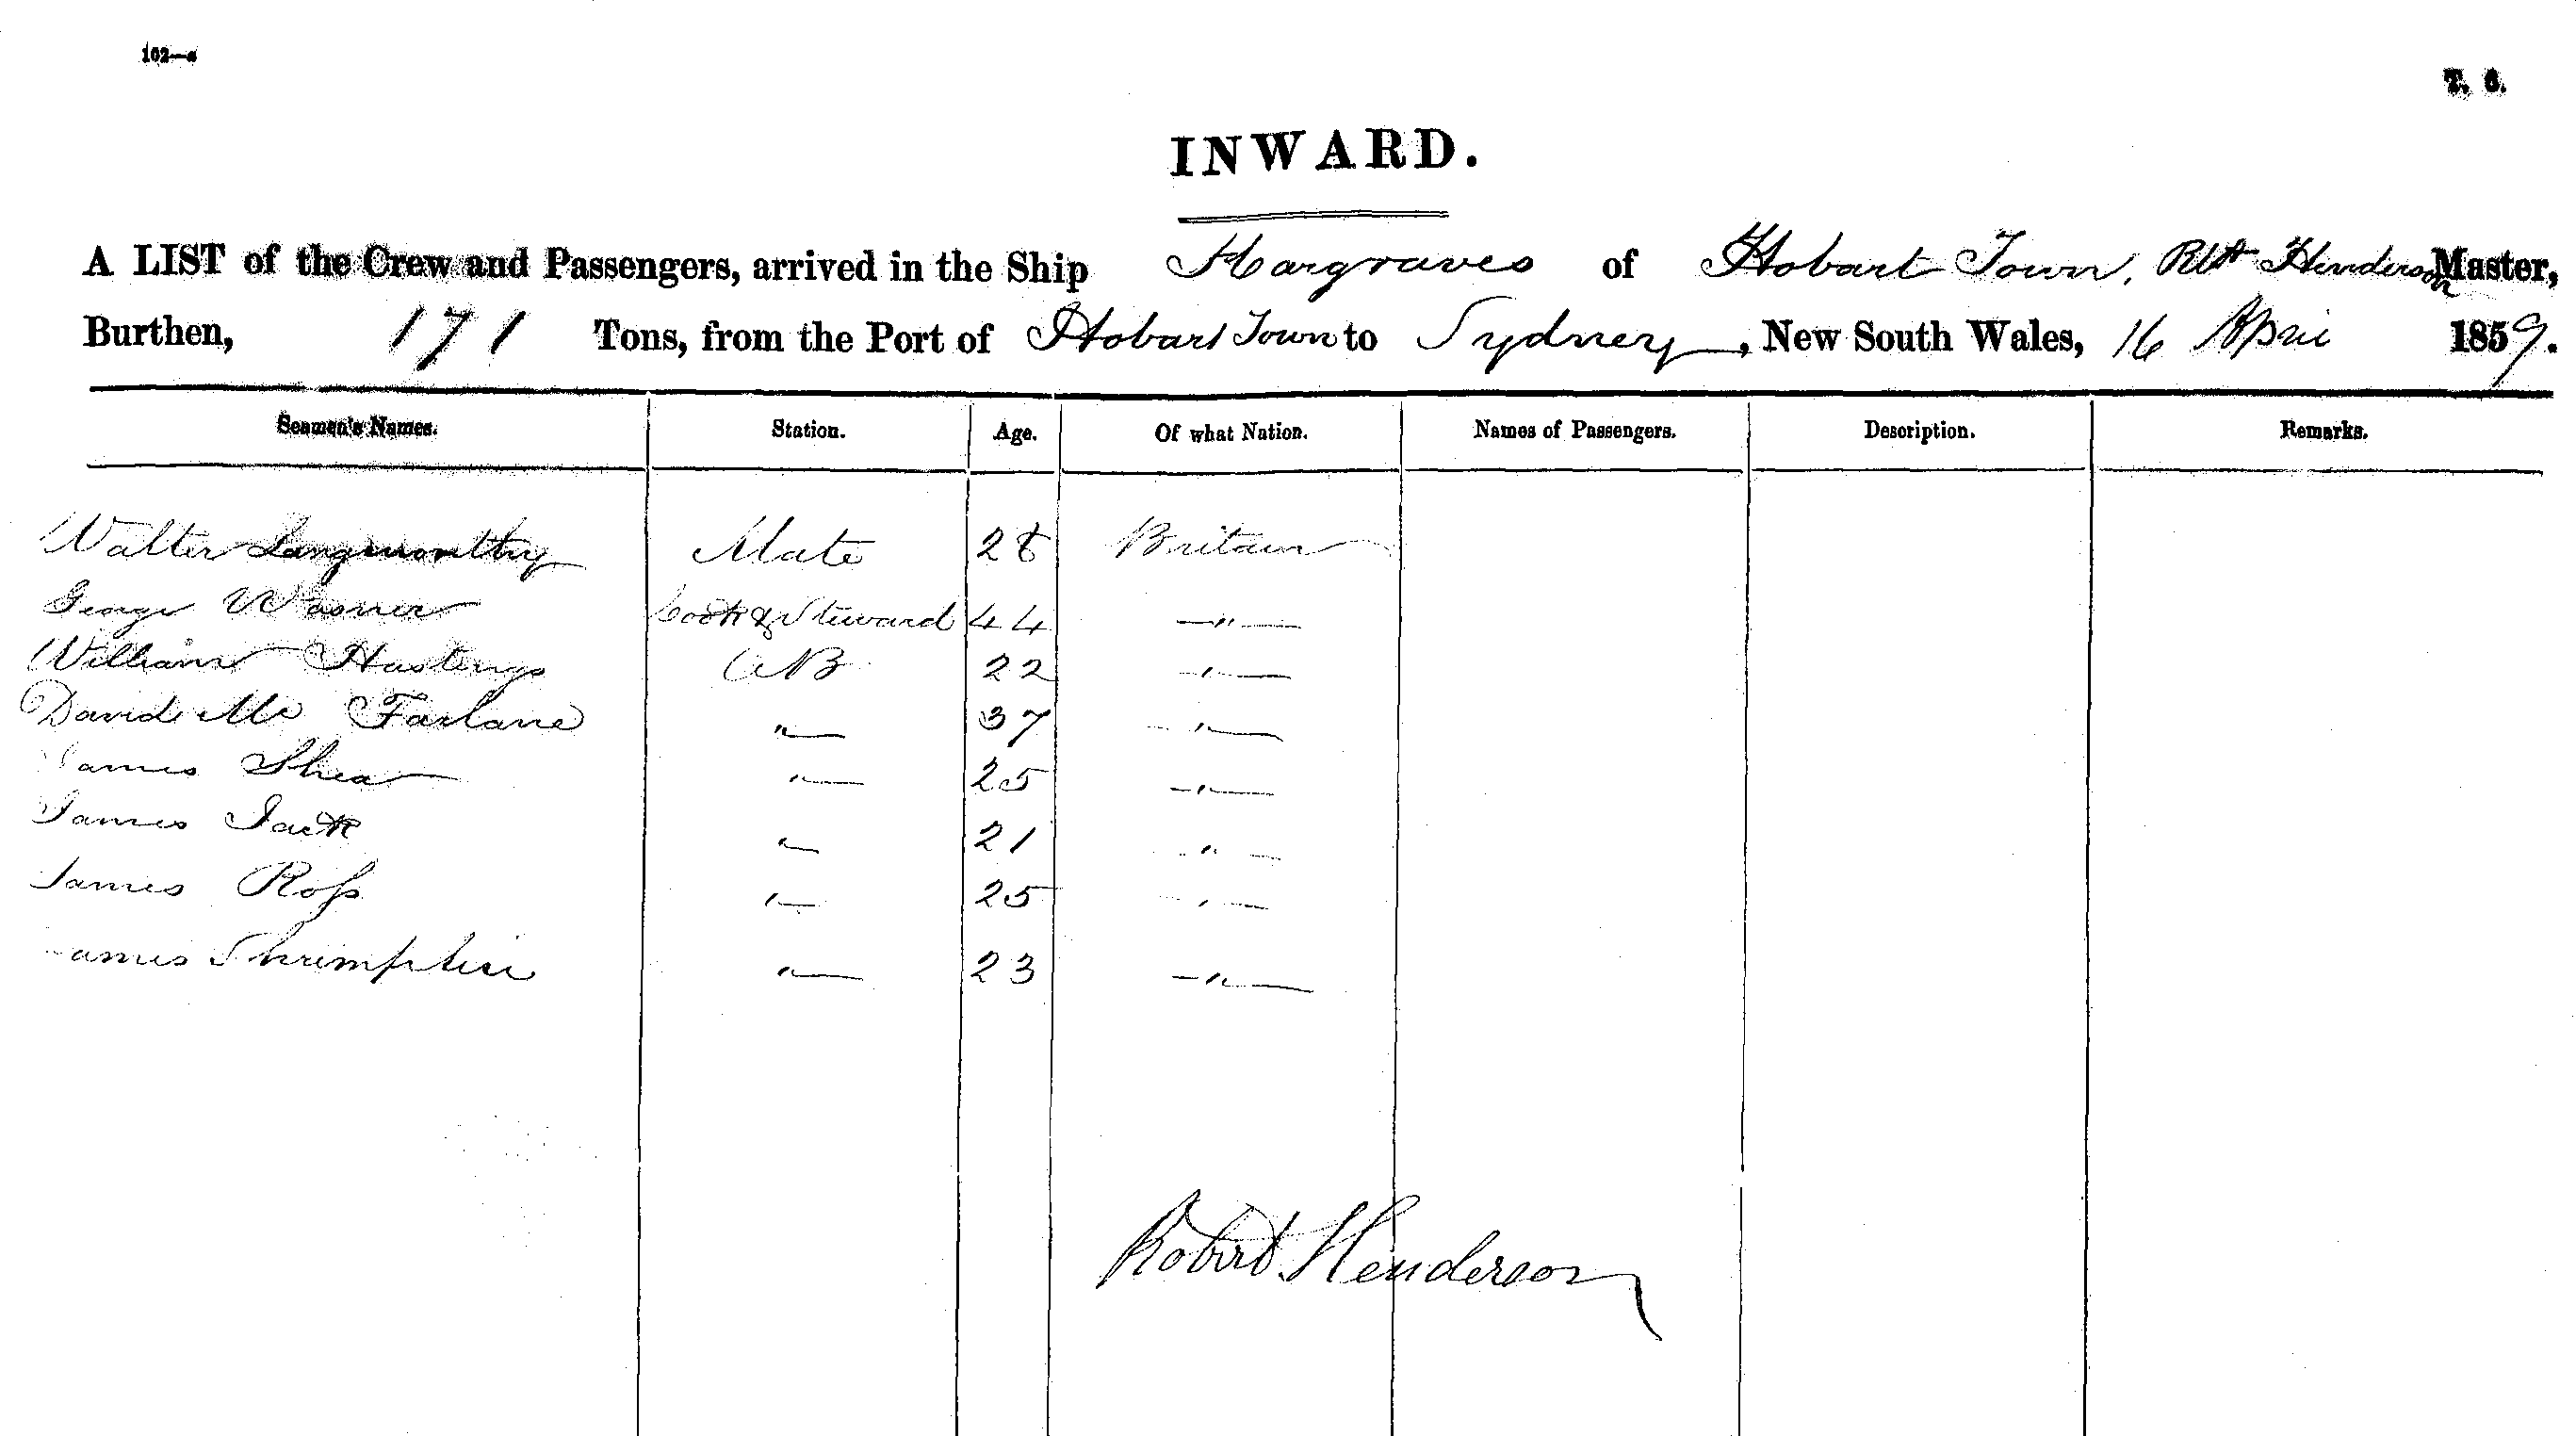 102—a
T. 6.
INWARD.
A LIST of the Crew and Passengers, arrived in the Ship Hargraves of Hobart Town, Robt Henderson Master,
Burthen, 171 Tons, from the Port of Hobart Town to Sydney, New South Wales, 16 April 1859.
Seamen's Names. Station. Age. Of what Nation. Names of Passengers. Description. Remarks.
Walter Langworthy Mate 28 Britain
George Cook & Steward 44 —"—
William Hastings AB 22 —"—
David Mc Farlane "— 37 —"—
James Shea "— 25 —"—
James Jack "— 21 —"—
James Ross "— 25 —"—
James Shrimpton "— 23 —"—
Robert Henderson